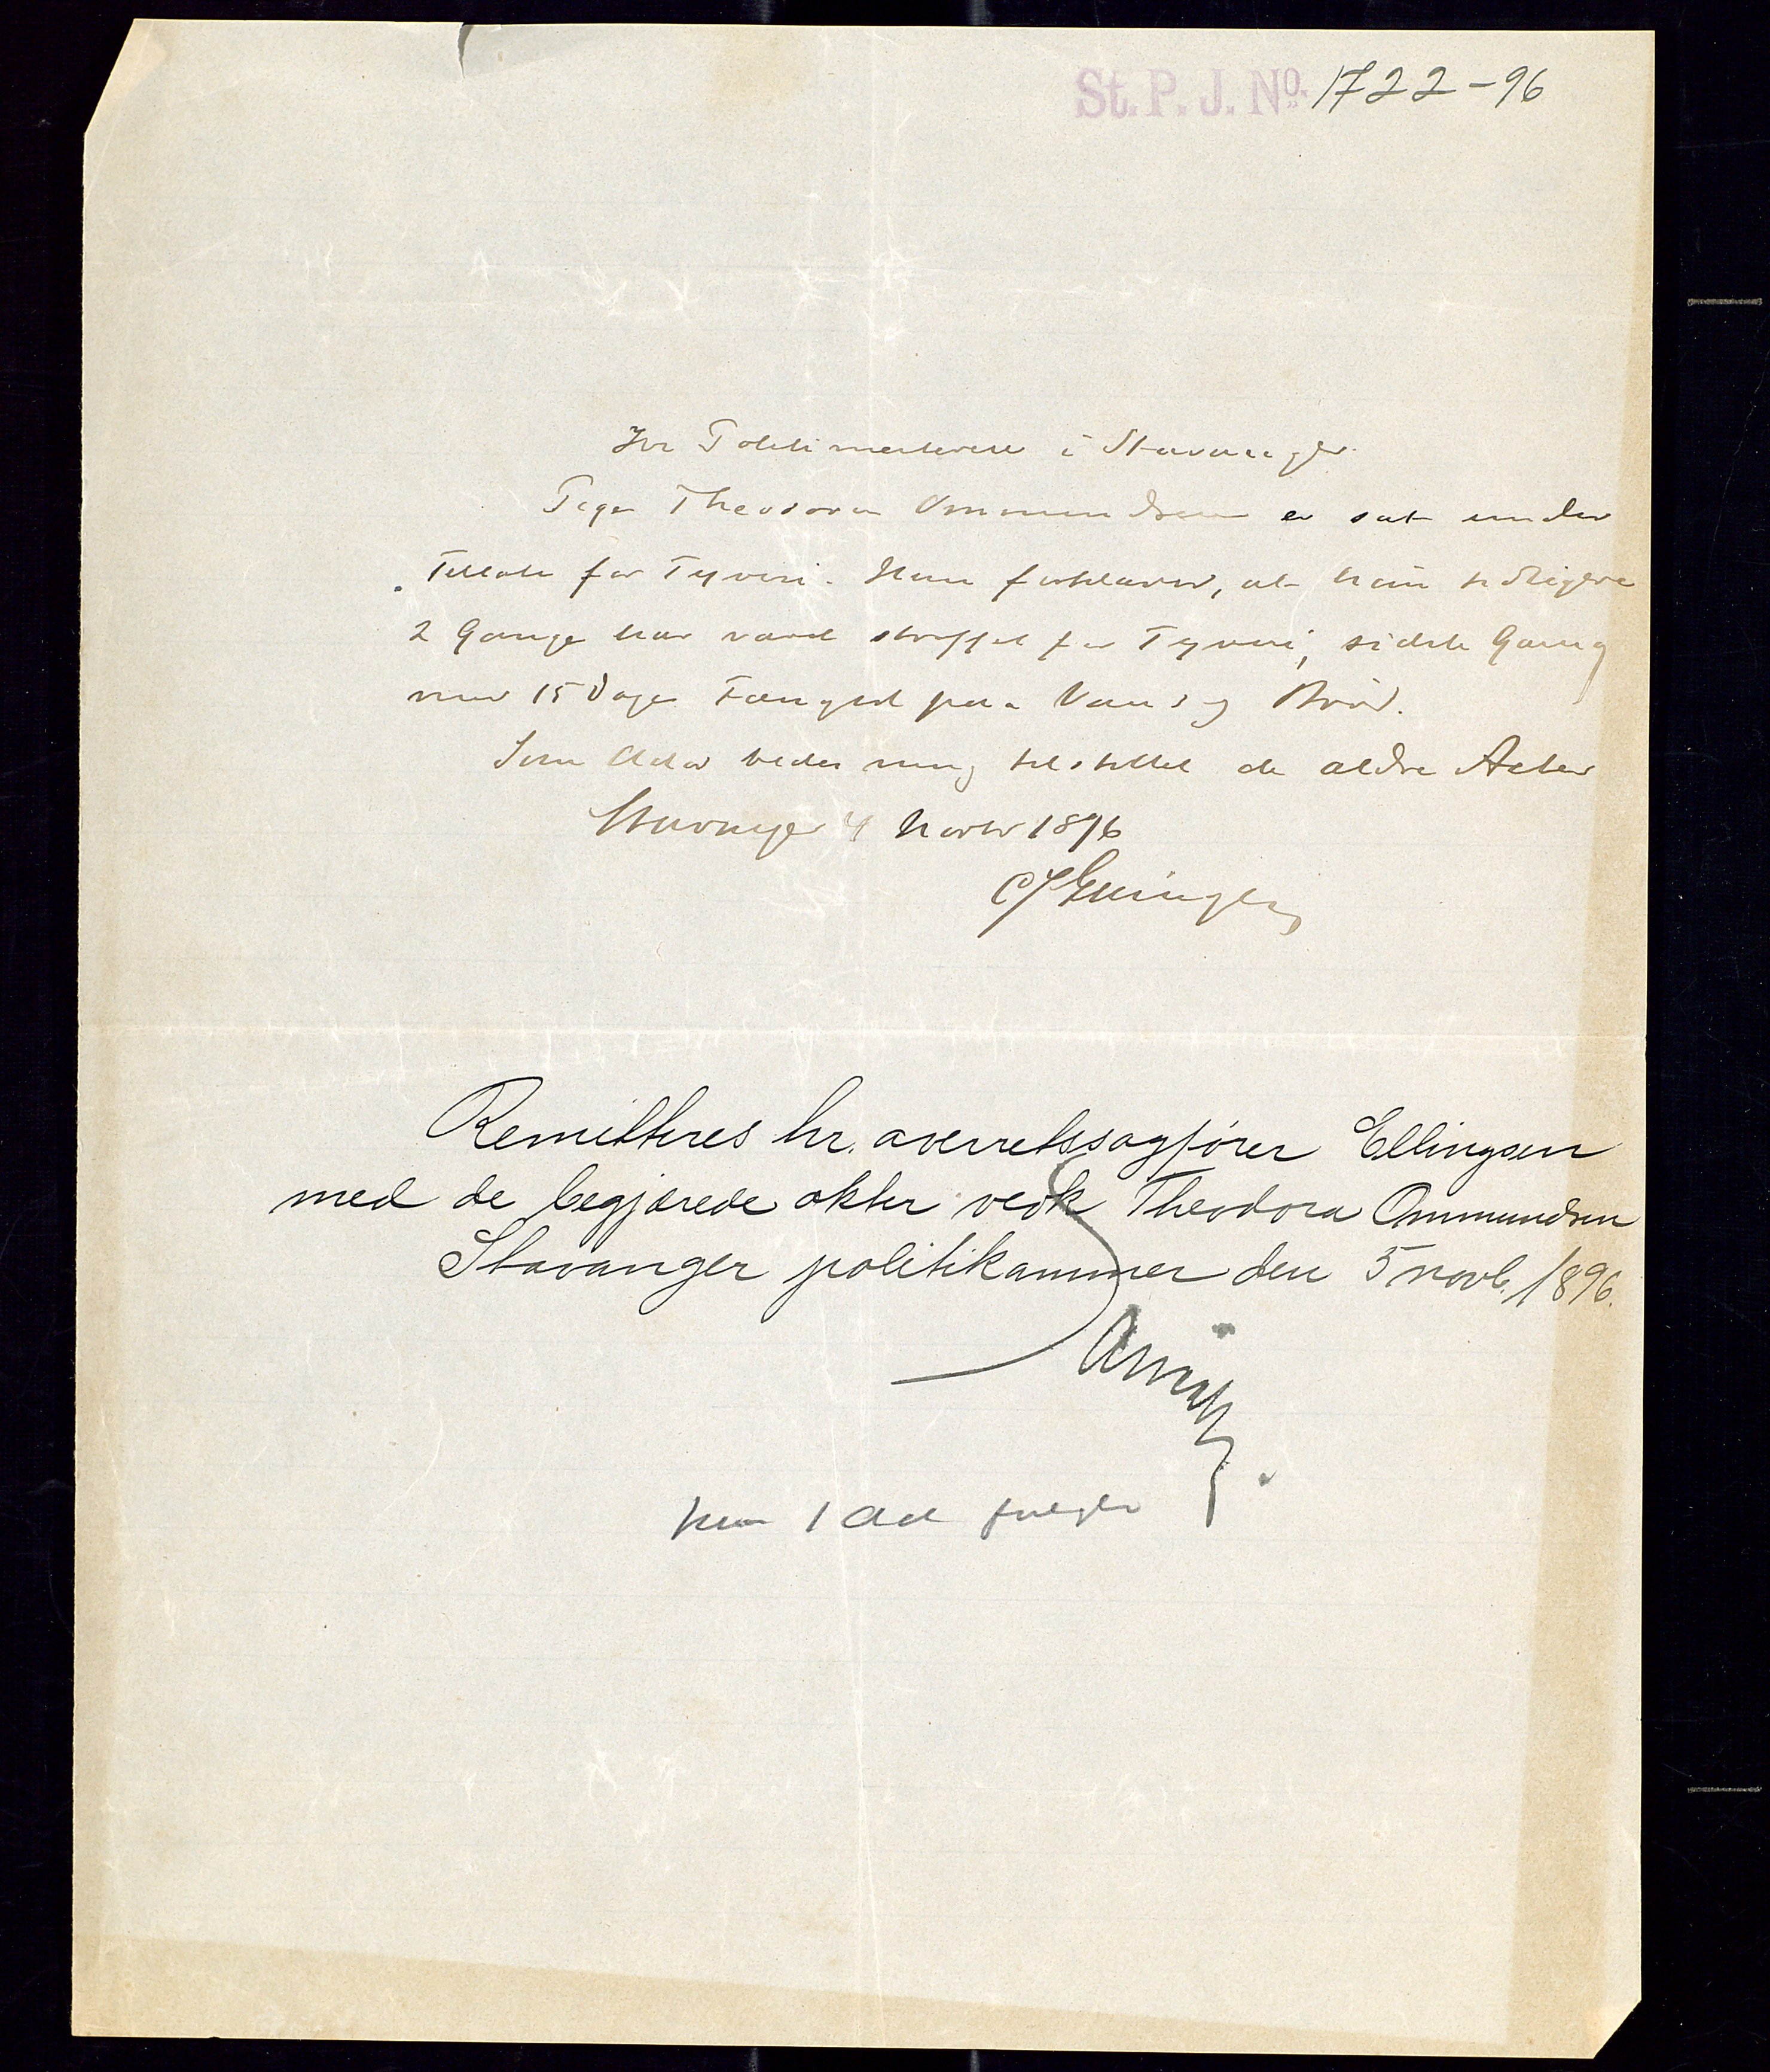 St. P. J. No. 1722-96
Hr Politimesteren i Stavanger.
Pige Theodora Ommundsen er sat under
Tiltale for Tyveri. Hun forklarer, at hun tidligere
2 Gange har været straffet for Tyveri, sidste Gang
med 15 Dages Fængsel paa Vand og Brød.
Som Aktor bedes mig tilstillet de ældre Acter
Stavanger 4 Novbr 1896
Ellingsen
Remitteres hr. overretssagfører Ellingsen
med de begjærede akter vedk Theodora Ommundsen
Stavanger politikammer den 5 novb. 1896.
kun 1 Act følger